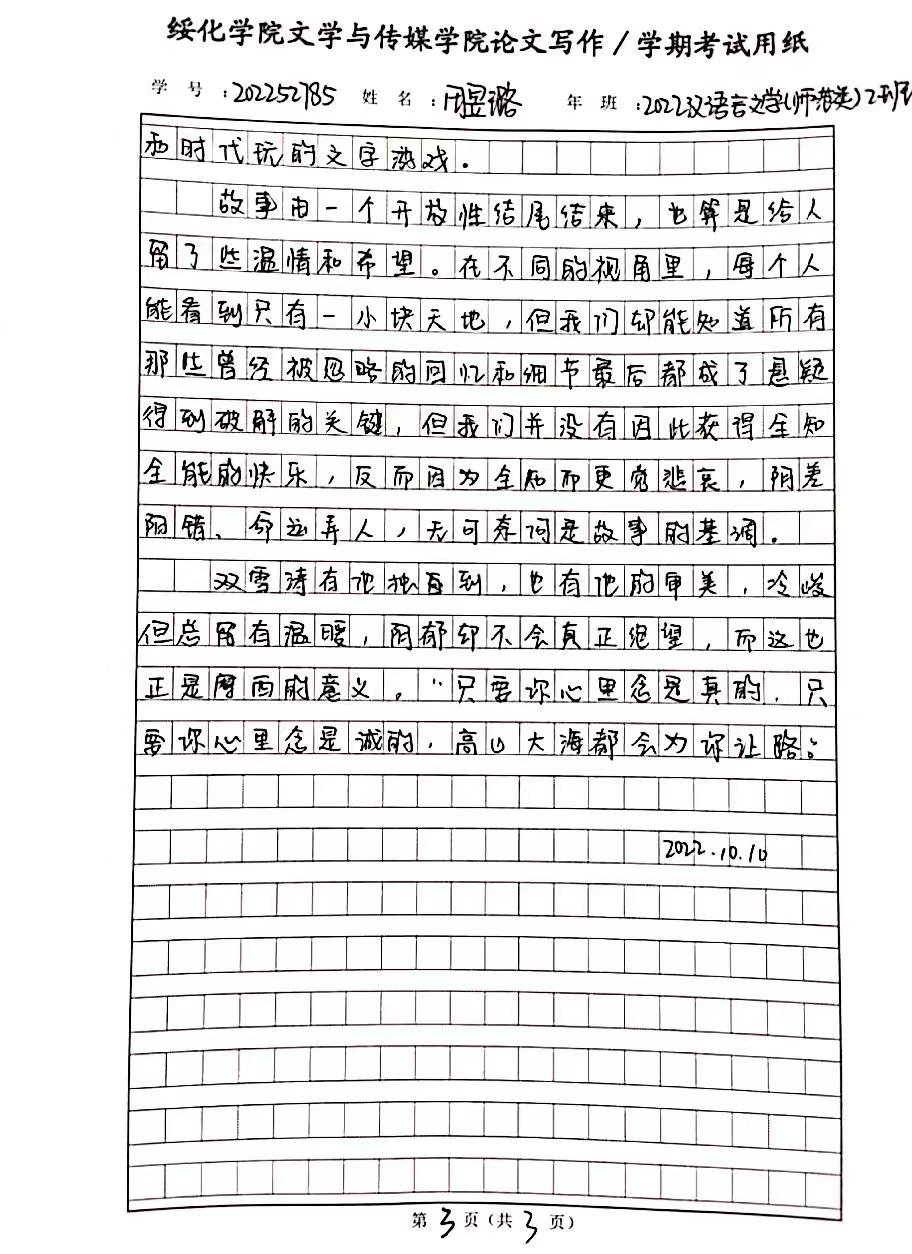 绥化学院文学与传媒学院论文写作/学期考试用纸
学 号:202252785 姓 名:闫昱璐 年 班:2022汉语言文学(师范类)2班
和时代玩的文字游戏。
故事由一个开放性结尾结束,也算是给人
留了些温情和希望。在不同的视角里,每个人
能看到只有一小块天地,但我们却能知道所有
那些曾经被忽略的回忆和细节最后都成了悬疑
得到破解的关键,但我们并没有因此获得全知
全能的快乐,反而因为全知而更觉悲哀,阴差
阳错、命运弄人,无可奈何是故事的基调。
双雪涛有他独到,也有他的审美,冷峻
但总留有温暖,阴郁却不会真正绝望,而这也
正是摩西的意义,“只要你心里念是真的,只
要你心里念是诚的,高山大海都会为你让路。
2022.10.10
第3页(共3页)